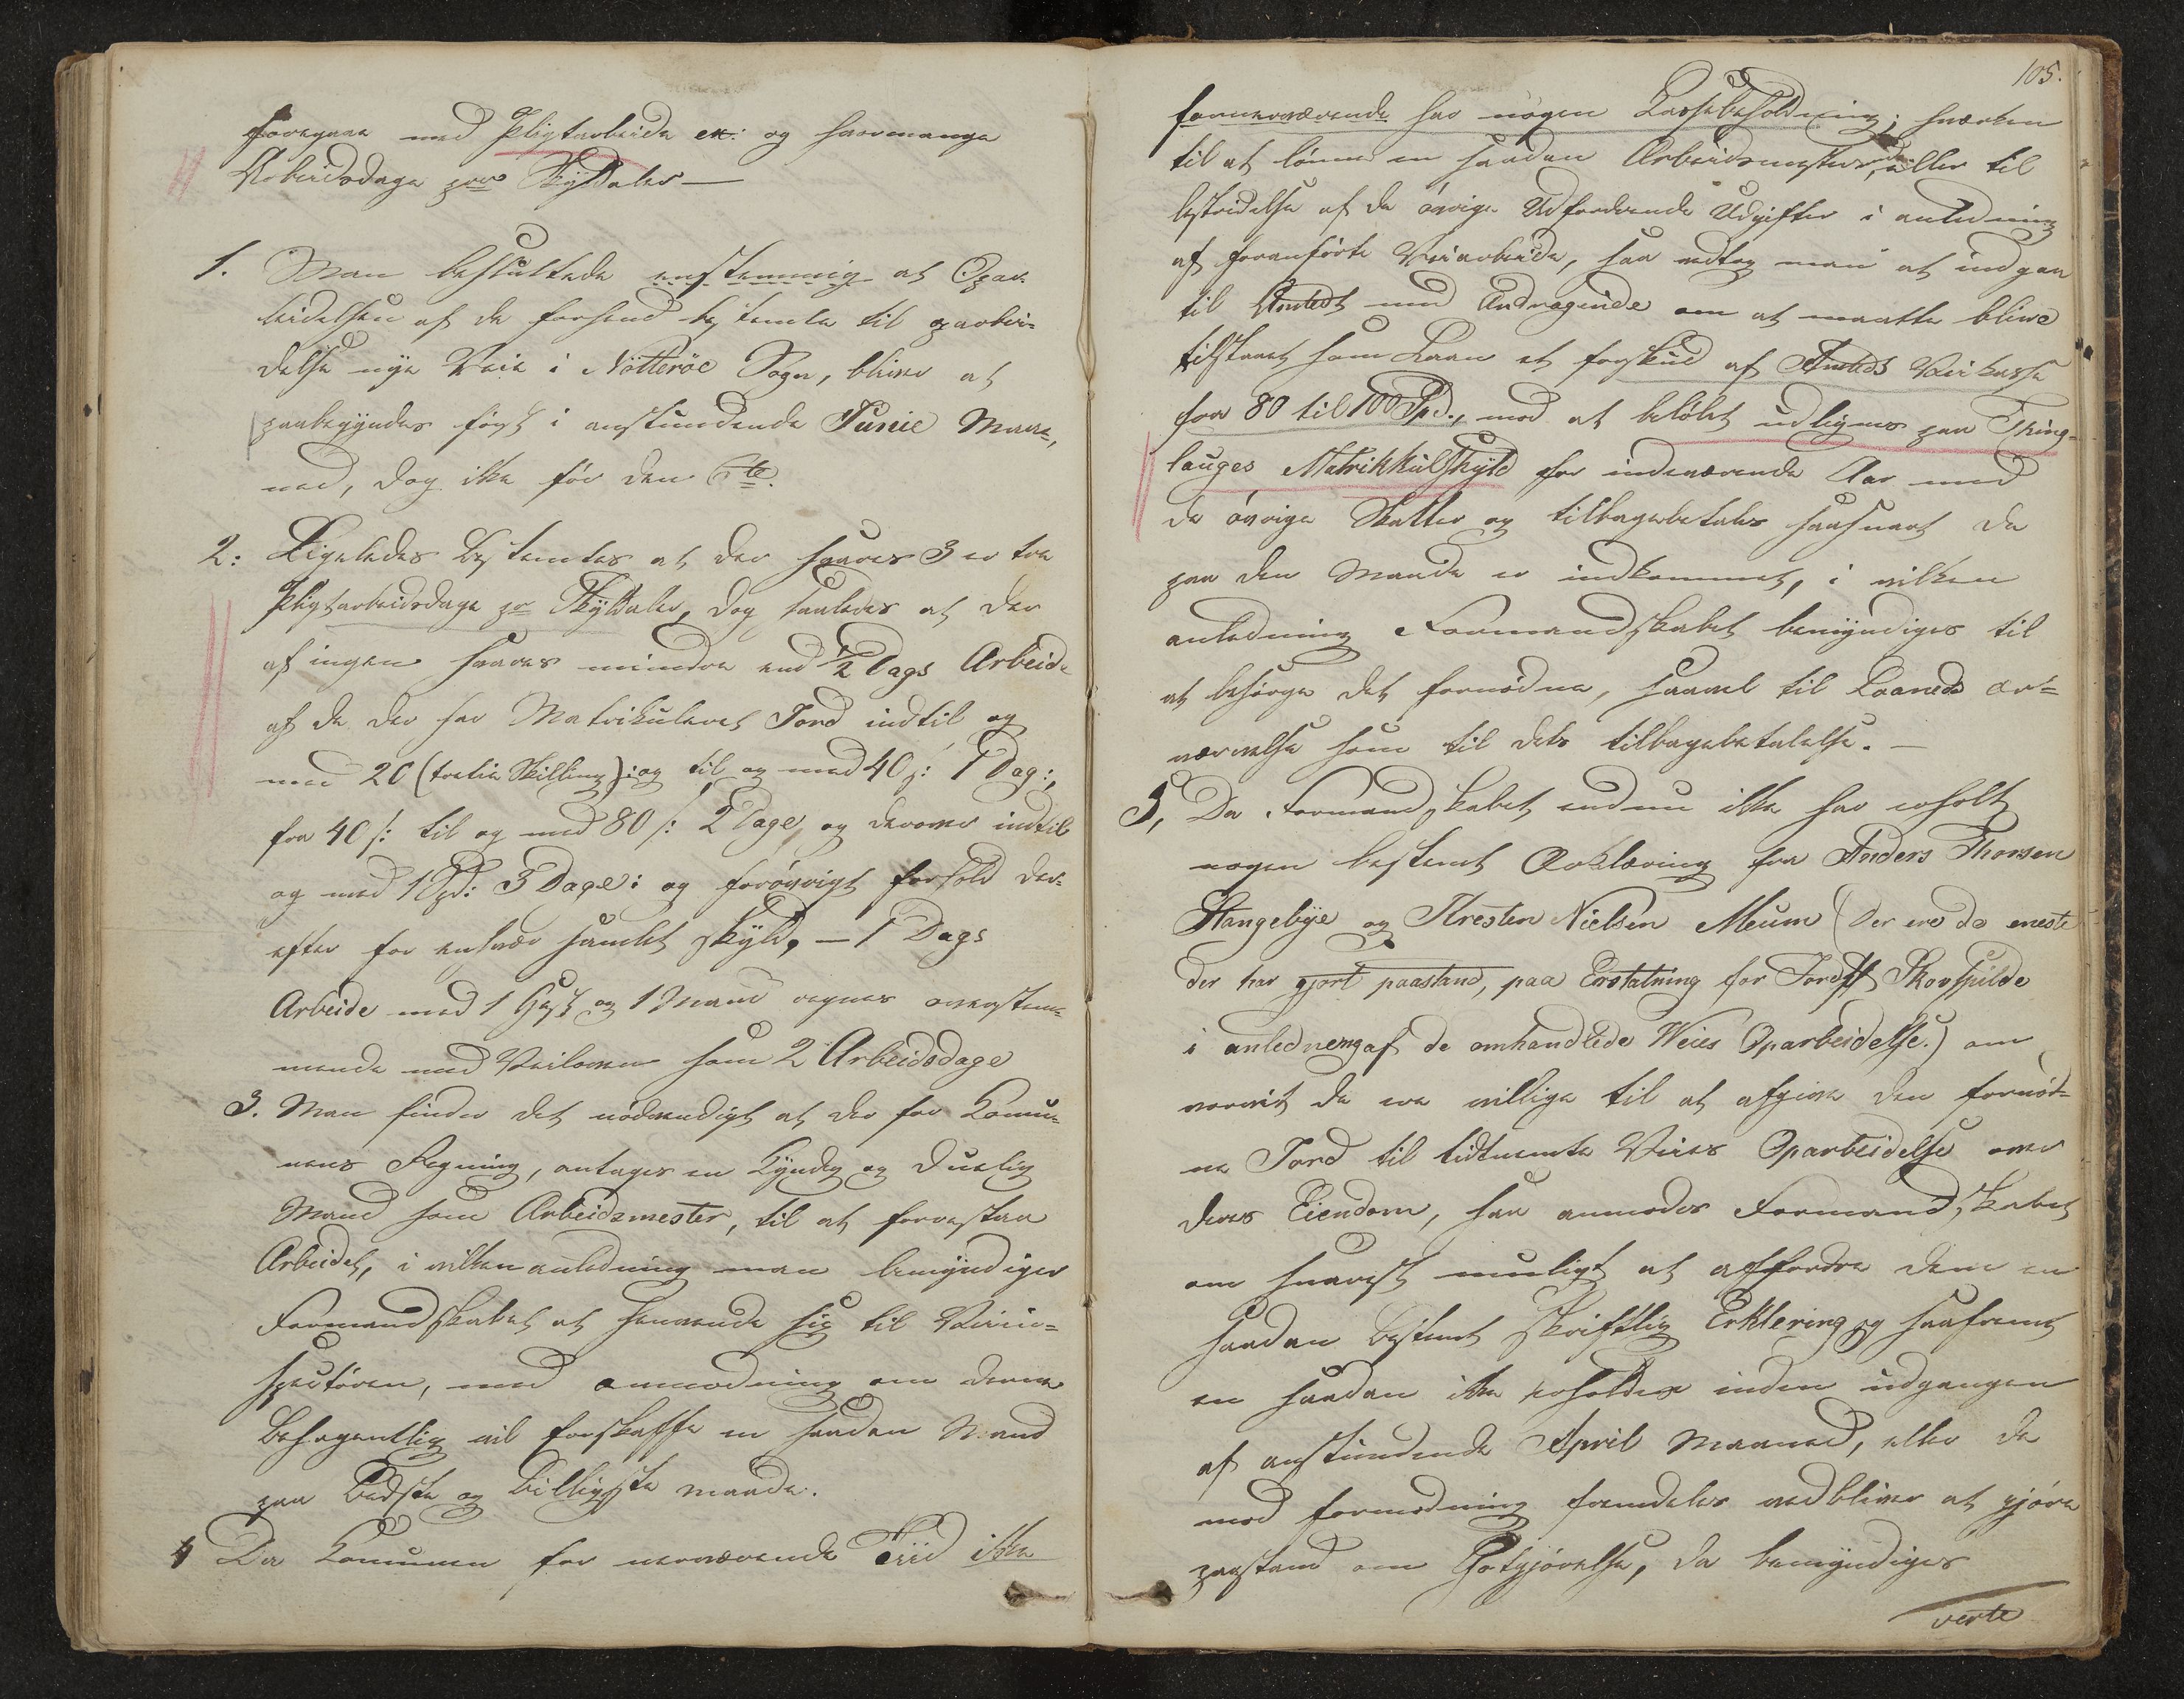 foregaae med Pligtarbeide etc: og hvormange
Arbeidsdage pro Skylldaler —
1. Man besluttede enstemmig at Opar-
beidelsen af de forhend bestemte til oparbei-
delse nye Veie i Nötteröe Sogn, bliver at
paabegyndes först i anstundende Junie Maa-
ned, dog ikke för den 6te
2: Ligeledes bestemtes at der svares 3 er tre
Pligtarbeidsdage pr Skylldaler, dog saaledes at der
af ingen svares mindre end 1/2 Dags Arbeide
af de der har Matrikuleret Jord indtil og
med 20 (tretie Skilling): og til og med 40 s: 1 Dag:,
fra 40 s: til og med 80 s: 2 Dage, og derover indtil
og med 1 Spd: 3 Dage: og forövrigt forhold der-
efter for enhver samlet skyld, — 1 Dags
Arbeide med 1 Hest og 1 Mand regnes overstem-
mende med Veiloven som 2 Arbeidsdage
3. Man finder det nödvendigt at der for Komu-
nens Regning, antages en Kyndig og Duelig
Mand som Arbeidsmester, til at forrestaa
Arbeidet, i vilken anledning man bemyndiger
Formandskabet at henvende sig til Veiin-
spectören, med anmodning om denne
behagentlig vil forskaffe en saadan Mand
paa bedste og billigste maade.
4 Da Komunen for nerværende Tiid ikke
105.
fornerværende har nogen Kassebeholdning; hverken
til at lönne en saadan Arbeidsmester, eller til
bestridelse af de övrige Udfordrende Udgifter i anledning
af foranförte Veiarbeide, saa vedtog man at indgaa
til Amtet med Andragende om at maatte blive
tilstaaet som Laan et forskud af Amtets Veikasse
fra 80 til 100 Spd., mod at belöbet udlignes paa Thing-
lauges Matrikkulskyld for indeværende Aar med
de övrige Skatter og tilbagebetales saasnart de
paa den Maade er indkommet, i vilken
anledning Formandskabet bemyndiges til
at besörge det fornödne, saavel til Laanets er-
vervelse som til dets tilbagebetalelse. —
5, Da Formandskabet endnu ikke har erholt
nogen bestemt Erklæring fra Anders Thorsen
Stangebye og Kresten Nielsen Meum (der ere de eneste
der har gjort paastand, paa Erstatning for Jord og Skovspilde
i anledneng af de omhandlede Veies Oparbeidelse.) om
vorvit de ere villige til at afgive den fornöd-
ne Jord til bestemte Veies Oparbeidelse over
deres Eiendom, saa anmodes Formandskabet
om snarest muligt at affordre dem en
saadan bestemt skriftlig Erklering og saafremt
en saadan ikke erholdes inden udgangen
af anstundende April Maaned, eller de
mod formodning fremdeles vedbliver at gjöre
paastand om Godtgjörelse, da bemyndiges
verte